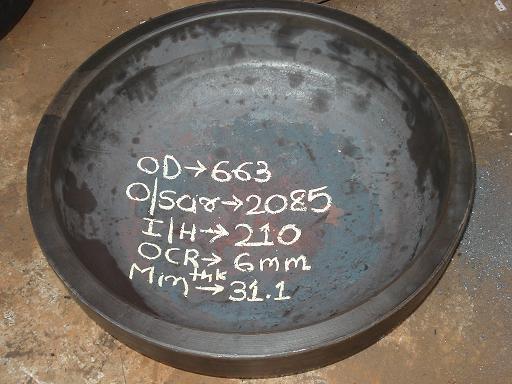 OD→663
O/Sur→2085
I/H→210
OCR→6mm
Mim thk→31.1